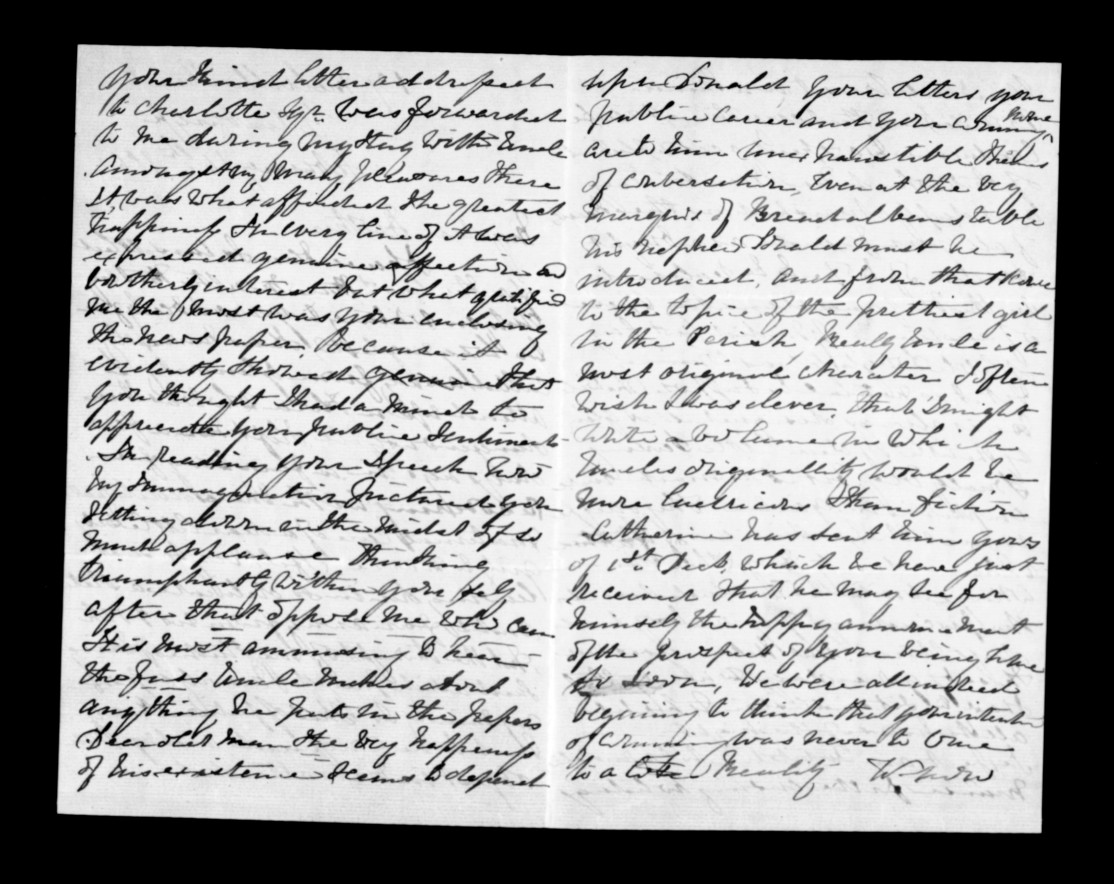 your kind letter addressed
to Charlotte Sqr. was forwarded
to me during my stay with Uncle
Amongst my many pleasures there
it was what afforded the greatest
happiness In every line of it was
expressed genuine affection and
brotherly interest but what gratified
me the most was your enclosing
the news paper, because it
evidently showed genuine that
you thought I had a mind to
appreciate your public sentiments
In reading your speech how
my immagination pictured you
sitting down in the midst of so
much applause thinking
triumphantly within your self
after that oppose me who can
It is most ammusing to hear
the fuss Uncle makes about
anything he puts in the papers
Dear old man the very happiness
of his existence seems to depend
upon Donald, Your letters your
public career and your comming home
are to him inexhaustible themes
of conversation, Even at the very
Marquis of Breadalbanes table
his nephew Donald must be
introduced, and from that
to the topic of the prettiest girl
in the Parish, Really Uncle is a
most original character I often
wish I was clever, that I might
write a volume in which
Uncles originallity would be
more than fiction
Catherine has sent him yours
of 1st. Decb, which we have just
received that he may see for
himself the happy announcement
of the prospect of your being home
so soon, We were all indeed
begining to think that your intention
of comming was never to come
to a reality